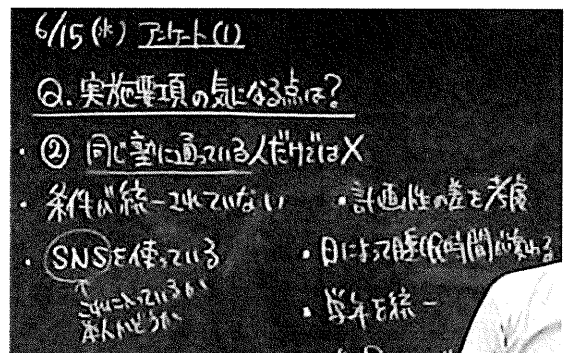 6/15(水) アンケート(1)
Q. 実施要項の気になる点は?
・② 同じ塾に通っている人だけではX
・条件が統一されていない
・SNSを使っている
↑
これに入っているかい
本人かどうか
・計画性の差を考慮
・日によって睡眠時間が変わる
・学年を統一